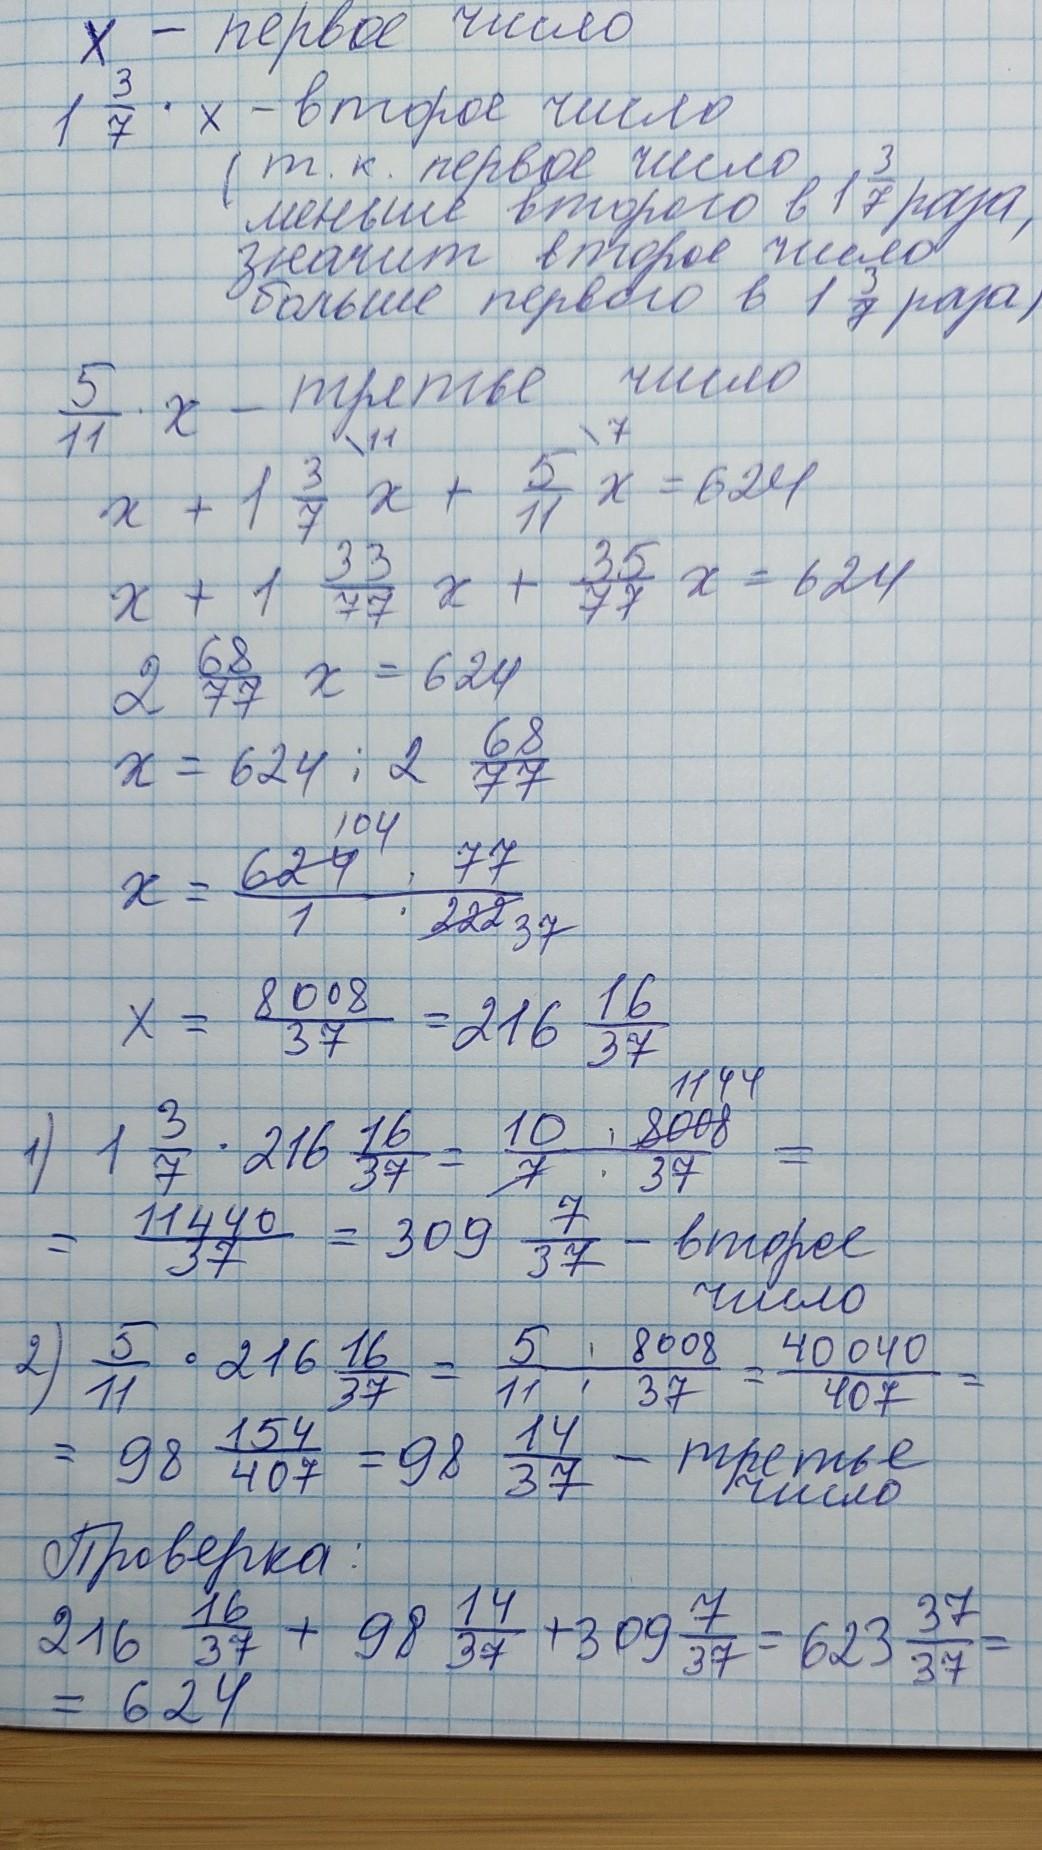 x - первое число
1 3/7 · x - второе число
(т.к. первое число
меньше второго в 1 3/7 раза,
значит второе число
больше первого в 1 3/7 раза)
5/11 · x - третье число
x + 1 3/7 \11 x + 5/11 \7 x = 624
x + 1 33/77 x + 35/77 x = 624
2 68/77 x = 624
x = 624 : 2 68/77
x = 624 104 · 77 / 1 · 222 37
x = 8008/37 = 216 16/37
1) 1 3/7 · 216 16/37 = 10 · 8008 1144 / 7 · 37 =
= 11440/37 = 309 7/37 - второе
число
2) 5/11 · 216 16/37 = 5 · 8008 / 11 · 37 = 40040/407 =
= 98 154/407 = 98 14/37 - третье
число
Проверка:
216 16/37 + 98 14/37 + 309 7/37 = 623 37/37 =
= 624